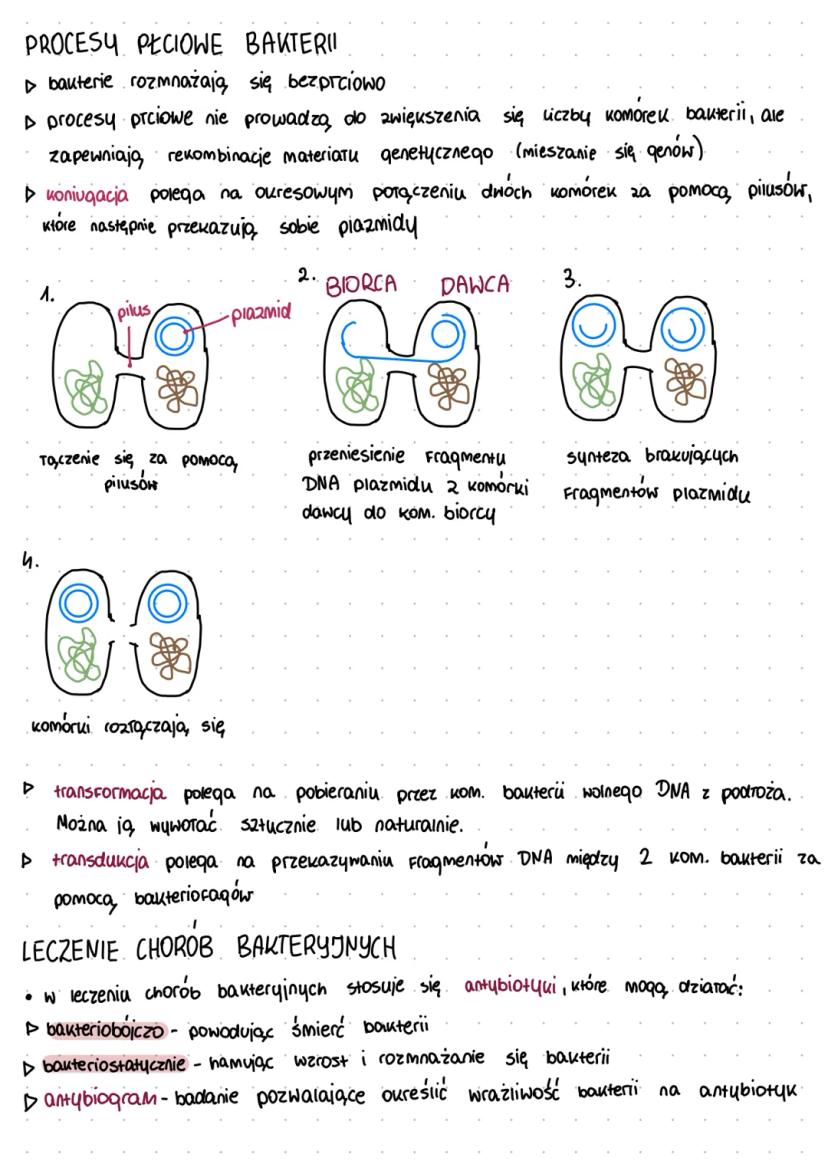 PROCESY PŁCIOWE BAKTERII
▷ bakterie rozmnażają się bezpłciowo
▷ procesy płciowe nie prowadzą do zwiększenia się liczby komórek bakterii, ale
zapewniają rekombinacje materiału genetycznego (mieszanie się genów)
▷ koniugacja polega na okresowym połączeniu dwóch komórek za pomocą pilusów,
które następnie przekazują sobie plazmidy
1.
pilus
plazmid
łączenie się za pomocą
pilusów
2.
BIORCA DAWCA
przeniesienie fragmentu
DNA plazmidu z komórki
dawcy do kom. biorcy
3.
synteza brakujących
fragmentów plazmidu
4.
komórki rozłączają się
▷ transformacja polega na pobieraniu przez kom. bakterii wolnego DNA z podłoża.
Można ją wywołać sztucznie lub naturalnie.
▷ transdukcja polega na przekazywaniu fragmentów DNA między 2 kom. bakterii za
pomocą bakteriofagów
LECZENIE CHORÓB BAKTERYJNYCH
• w leczeniu chorób bakteryjnych stosuje się antybiotyki, które mogą działać:
▷ bakteriobójczo - powodując śmierć bakterii
▷ bakteriostatycznie - hamując wzrost i rozmnażanie się bakterii
▷ antybiogram - badanie pozwalające określić wrażliwość bakterii na antybiotyk